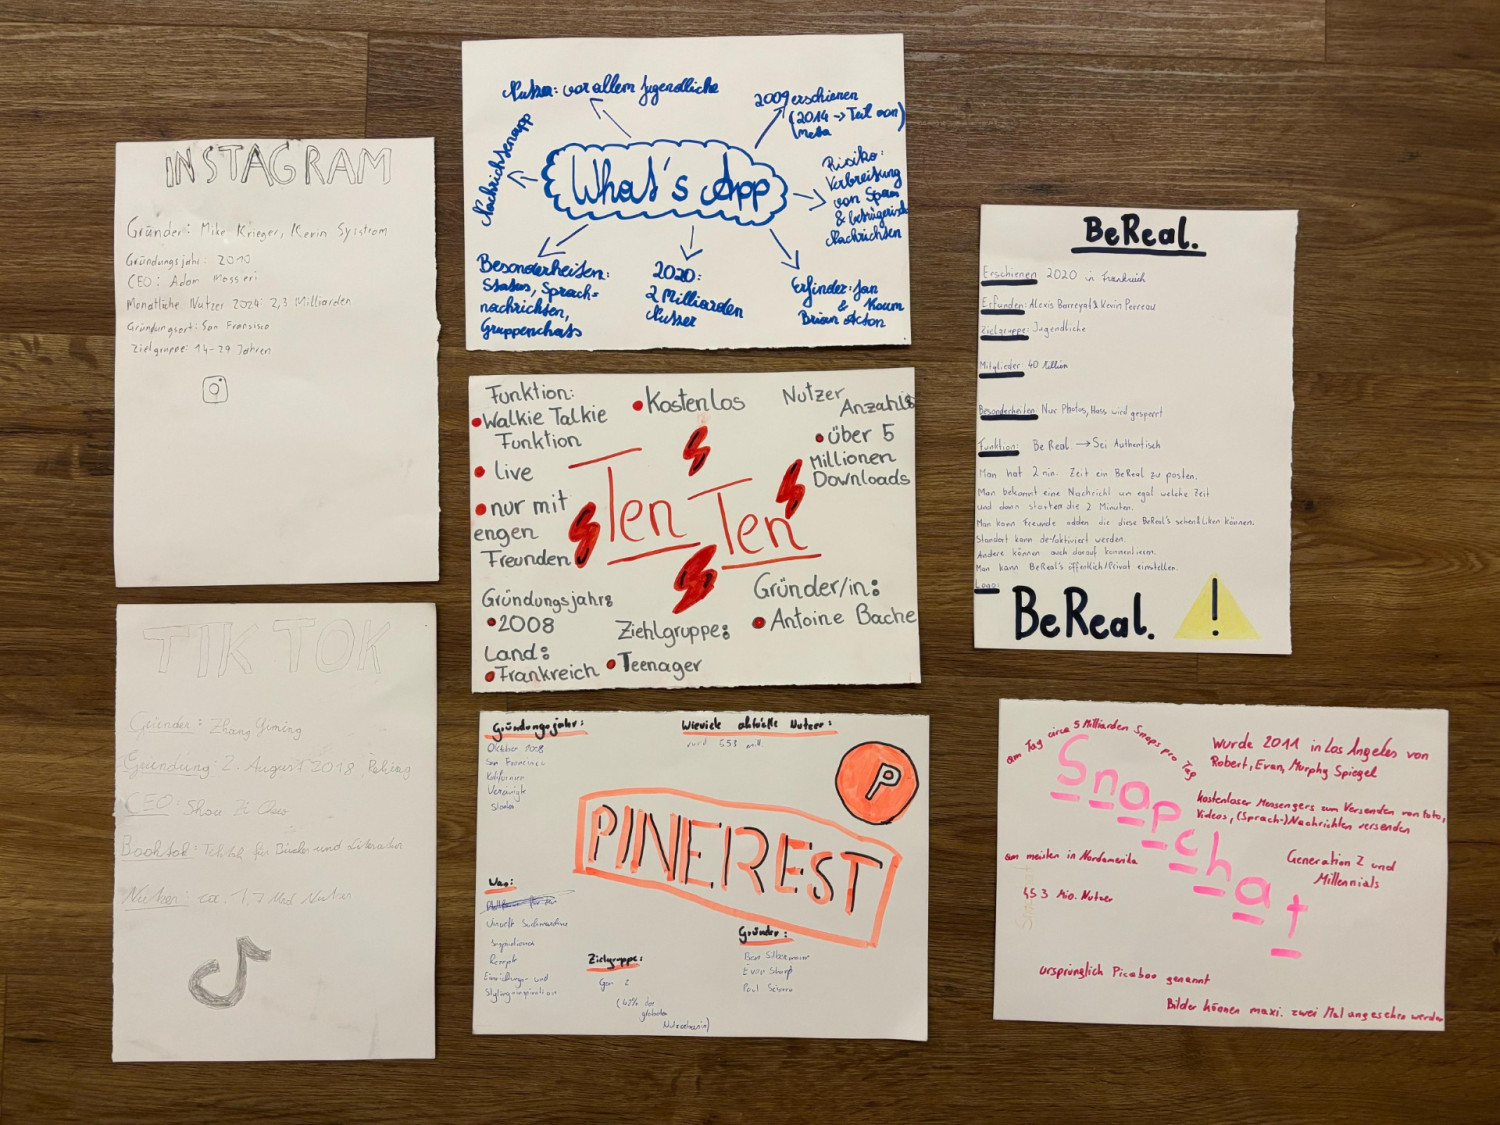 INSTAGRAM
Gründer: Mike Krieger, Kevin Systrom
Gründungsjahr: 2010
CEO: Adam Mosseri
Monatliche Nutzer 2024: 2,3 Milliarden
Gründungsort: San Fransisco
Zielgruppe: 14-29 Jahren
TIK TOK
Gründer: Zhang Yiming
Gründung: 2. August 2018, Peking
CEO: Shou Zi
Booktok: Tiktok für Bücher und Literatur
Nutzer: ca. 1,7 Mrd Nutzer
Nutzer: vor allem Jugendliche
2009 erschienen
(2014 → Teil von
Meta
Nachrichtenapp
What's App
Risiko:
Verbreitung
von Spam
& betrügerisch
Nachrichten
Besonderheiten:
Status, Sprach-
nachrichten,
Gruppenchats
2020:
2 Milliarden
Nutzer
Erfinder: Jan
& Koum
Brian Acton
Funktion:
Walkie Talkie
Funktion
live
nur mit
engen
Freunden
Kostenlos
Nutzer
Anzahl:
über 5
Millionen
Downloads
Ten Ten
Gründungsjahr:
2008
Land:
Frankreich
Ziehlgruppe:
Teenager
Gründer/in:
Antoine Bache
Gründungsjahr:
Oktober 2008
San Francisco
Kalifornien
Vereinigte
Staaten
Wieviele aktuelle Nutzer:
rund 553 mill
P
PINEREST
Was:
Umwelt Suchmaschine
Inspirationen
Rezepte
Einrichtungs- und
Stylinginspiration
Zielgruppe:
Gen Z
(42% der
globalen
Nutzer)
Gründer:
Ben Silbermann
Evan Sharp
Paul Sciarra
BeReal.
Erschienen 2020 in Frankreich
Erfunden: Alexis Barreyat & Kevin Perreau
Zielgruppe: Jugendliche
Mitglieder: 40 Million
Besonderheiten: Nur Photos, Hass wird gesperrt
Funktion: BeReal. → Sei Authentisch
Man hat 2 min. Zeit ein BeReal zu posten.
Man bekommt eine Nachricht um egal welche Zeit
und dann starten die 2 Minuten.
Man kann Freunde adden die diese BeReal's sehen & liken können.
Standort kann de-/aktiviert werden.
Andere können auch darauf kommentieren.
Man kann BeReal's öffentlich/Privat einstellen.
Logo:
BeReal.
!
am Tag circa 5 Milliarden Snaps pro Tag
Snapchat
Wurde 2011 in Los Angeles von
Robert, Evan, Murphy Spiegel
kostenloser Messengers zum Versenden von Foto,
Videos, (Sprach-)Nachrichten versenden
am meisten in Nordamerika
453 Mio. Nutzer
Generation Z und
Millennials
ursprünglich Picaboo genannt
Bilder können maxi. zwei Mal angesehen werden